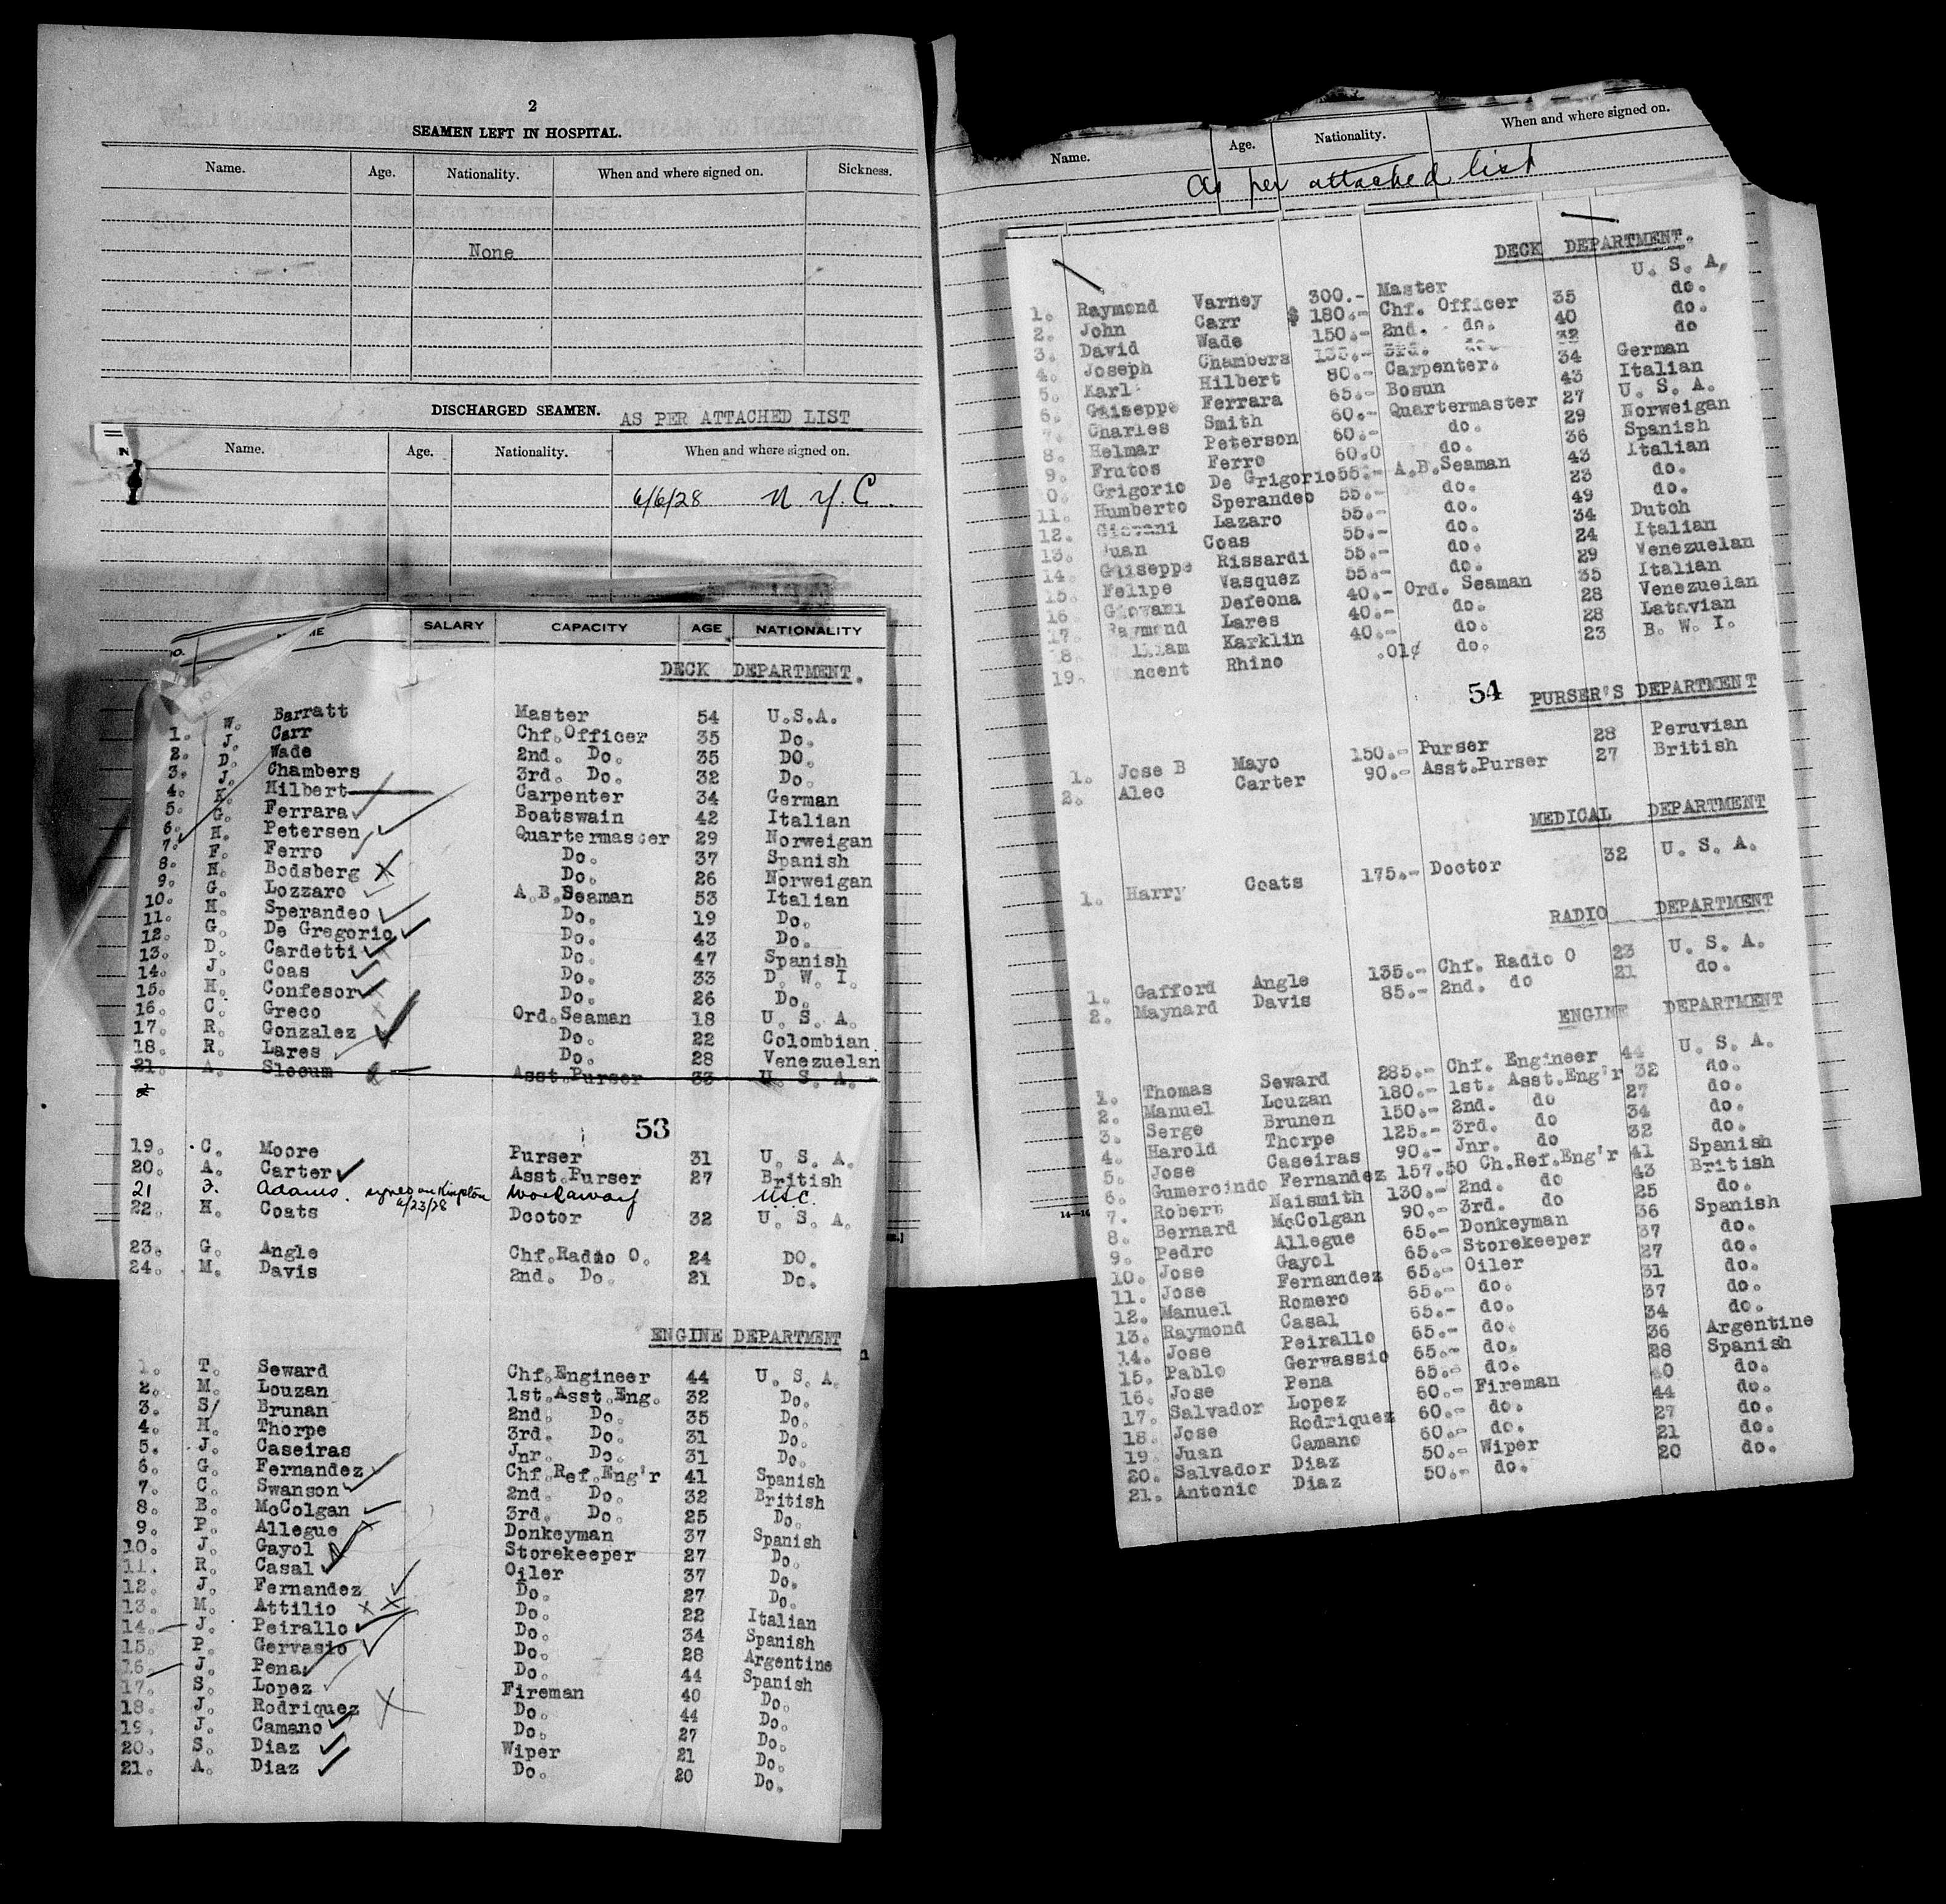 2
SEAMEN LEFT IN HOSPITAL.
Name. Age. Nationality. When and where signed on. Sickness.
None
DISCHARGED SEAMEN. AS PER ATTACHED LIST
Name. Age. Nationality. When and where signed on.
6/6/28 N.Y.C.
SALARY CAPACITY AGE NATIONALITY
DECK DEPARTMENT.
1. W. Barratt Master 54 U.S.A.
2. J. Carr Chf.Officer 35 Do.
3. D. Wade 2nd. Do. 35 DO.
4. J. Chambers 3rd. Do. 32 Do.
5. K. Hilbert Carpenter 34 German
6. G. Ferrara Boatswain 42 Italian
7. H. Petersen Quartermaster 29 Norweigan
8. F. Ferro Do. 37 Spanish
9. H. Bodsberg Do. 26 Norweigan
10. G. Lozzaro A.B.Seaman 53 Italian
11. H. Sperandeo Do. 19 Do.
12. G. De Gregorio Do. 43 Do.
13. D. Cardetti Do. 47 Spanish
14. J. Coas Do. 33 D. W. I.
15. H. Confesor Do. 26 Do.
16. C. Greco Ord.Seaman 18 U. S. A.
17. R. Gonzalez Do. 22 Colombian
18. R. Lares Do. 28 Venezuelan
21. A. Slocum Asst.Purser 33 U. S. A.
53
19. C. Moore Purser 31 U. S. A.
20. A. Carter Asst.Purser 27 British
21 F. Adams. signed on Kingston 6/23/28 Workaway
22. H. Coats Doctor 32 U. S. A.
23. G. Angle Chf.Radio O. 24 DO.
24. M. Davis 2nd. Do. 21 Do.
ENGINE DEPARTMENT
1. T. Seward Chf.Engineer 44 U. S. A.
2. M. Louzan 1st.Asst.Eng. 32 Do.
3. S/ Brunan 2nd. Do. 35 Do.
4. H. Thorpe 3rd. Do. 31 Do.
5. J. Caseiras Jnr. Do. 31 Do.
6. G. Fernandez Chf.Ref.Eng'r 41 Spanish
7. C. Swanson 2nd. Do. 32 British
8. B. McColgan 3rd. Do. 25 Do.
9. P. Allegue Donkeyman 37 Spanish
10. J. Gayol Storekeeper 27 Do.
11. R. Casal Oiler 37 Do.
12. J. Fernandez Do. 27 Do.
13. M. Attilio Do. 22 Italian
14. J. Peirallo Do. 34 Spanish
15. P. Gervasio Do. 28 Argentine
16. J. Pena Do. 44 Spanish
17. S. Lopez Fireman 40 Do.
18. J. Rodriquez Do. 44 Do.
19. J. Camano Do. 27 Do.
20. S. Diaz Wiper 21 Do.
21. A. Diaz Do. 20 Do.
Name. Age. Nationality. When and where signed on.
As per attached list
DECK DEPARTMENT.
1. Raymond Varney 300.- Master U. S. A.
2. John Carr $ 180.- Chf. Officer 35 do.
3. David Wade 150.- 2nd. do. 40 do.
4. Joseph Chambers 135.- 3rd. do. 32 do
5. Karl Hilbert 80.- Carpenter. 34 German
6. Guiseppe Ferrara 65.- Bosun 43 Italian
7. Charles Smith 60.- Quartermaster 27 U. S. A.
8. Helmar Peterson 60.- do. 29 Norweigan
9. Frutos Ferro 60.0 do. 36 Spanish
0. Grigorio De Grigorio 55.- A.B.Seaman 43 Italian
11. Humberto Sperandeo 55.- do. 23 do.
12. Giovani Lazaro 55.- do. 49 do.
13. Juan Coas 55.- do. 34 Dutch
14. Guiseppe Rissardi 55.- do. 24 Italian
15. Felipe Vasquez 55.- do. 29 Venezuelan
16. Giovani Defeona 40.- Ord. Seaman 35 Italian
17. Raymond Lares 40.- do. 28 Venezuelan
18. lliam Karklin 40.- do. 28 Latavian
19. ncent Rhino .01¢ do. 23 B. W. I.
54 PURSER'S DEPARTMENT
1. Jose B Mayo 150.- Purser 28 Peruvian
2. Alec Carter 90.- Asst.Purser 27 British
MEDICAL DEPARTMENT
1. Harry Coats 175.- Doctor 32 U. S. A.
RADIO DEPARTMENT
1. Gafford Angle 135.- Chf. Radio O 23 U. S. A.
2. Maynard Davis 85.- 2nd. do 21 do.
ENGINE DEPARTMENT
1. Thomas Seward 285.- Chf. Engineer 44 U. S. A.
2. Manuel Louzan 180.- 1st. Asst.Eng'r 32 do.
3. Serge Brunen 150.- 2nd. do 27 do.
4. Harold Thorpe 125.- 3rd. do 34 do.
5. Jose Caseiras 90.- Jnr. do 32 do.
6. Gumercindo Fernandez 157.50 Ch.Ref.Eng'r 41 Spanish
7. Robert Naismith 130.- 2nd. do 43 British
8. Bernard McColgan 90.- 3rd. do 25 do.
9. Pedro Allegue 65.- Donkeyman 36 Spanish
10. Jose Gayol 65.- Storekeeper 37 do.
11. Jose Fernandez 65.- Oiler 27 do.
12. Manuel Romero 65.- do. 31 do.
13. Raymond Casal 65.- do. 37 do.
14. Jose Peirallo 65.- do. 34 do.
15. Pablo Gervassio 65.- do. 36 Argentine
16. Jose Pena 65.- do. 28 Spanish
17. Salvador Lopez 60.- Fireman 40 do.
18. Jose Rodriquez 60.- do. 44 do.
19. Juan Camano 60.- do. 27 do.
20. Salvador Diaz 50.- Wiper 21 do.
21. Antonio Diaz 50.- do. 20 do.